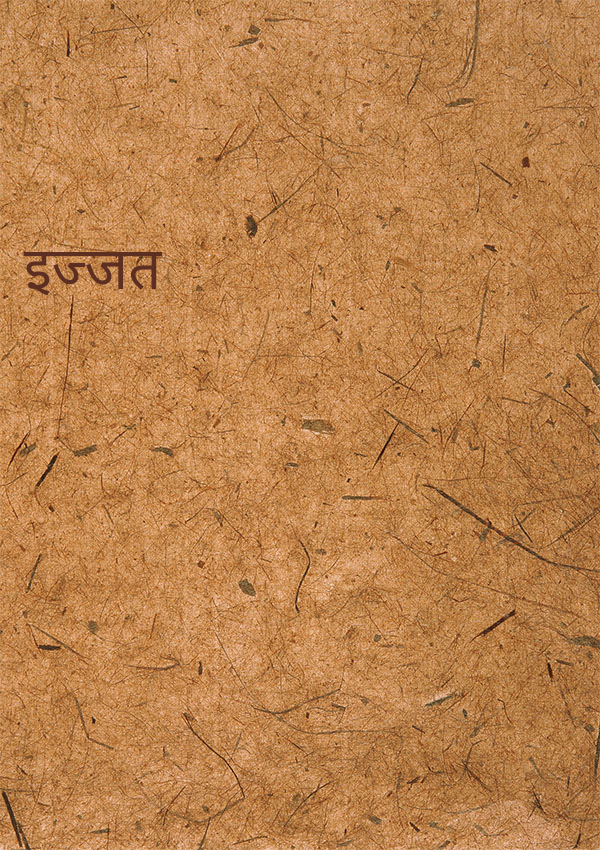 इज्जत